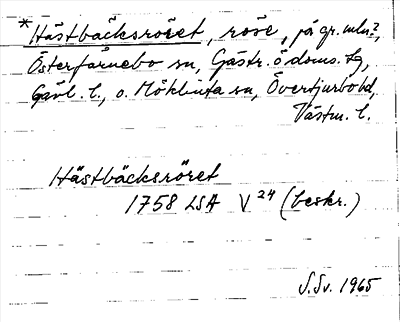 *Hästbäcksröret, röse, på gr. mln?,
Österfärnebo sn, Gästr. ö. doms. tg,
Gävl. l., o. Möklinta sn, Övertjurbo hd,
Västm. l.
Hästbäcksröret
1758 LSA V 24 (beskr.)
S.Sv. 1965